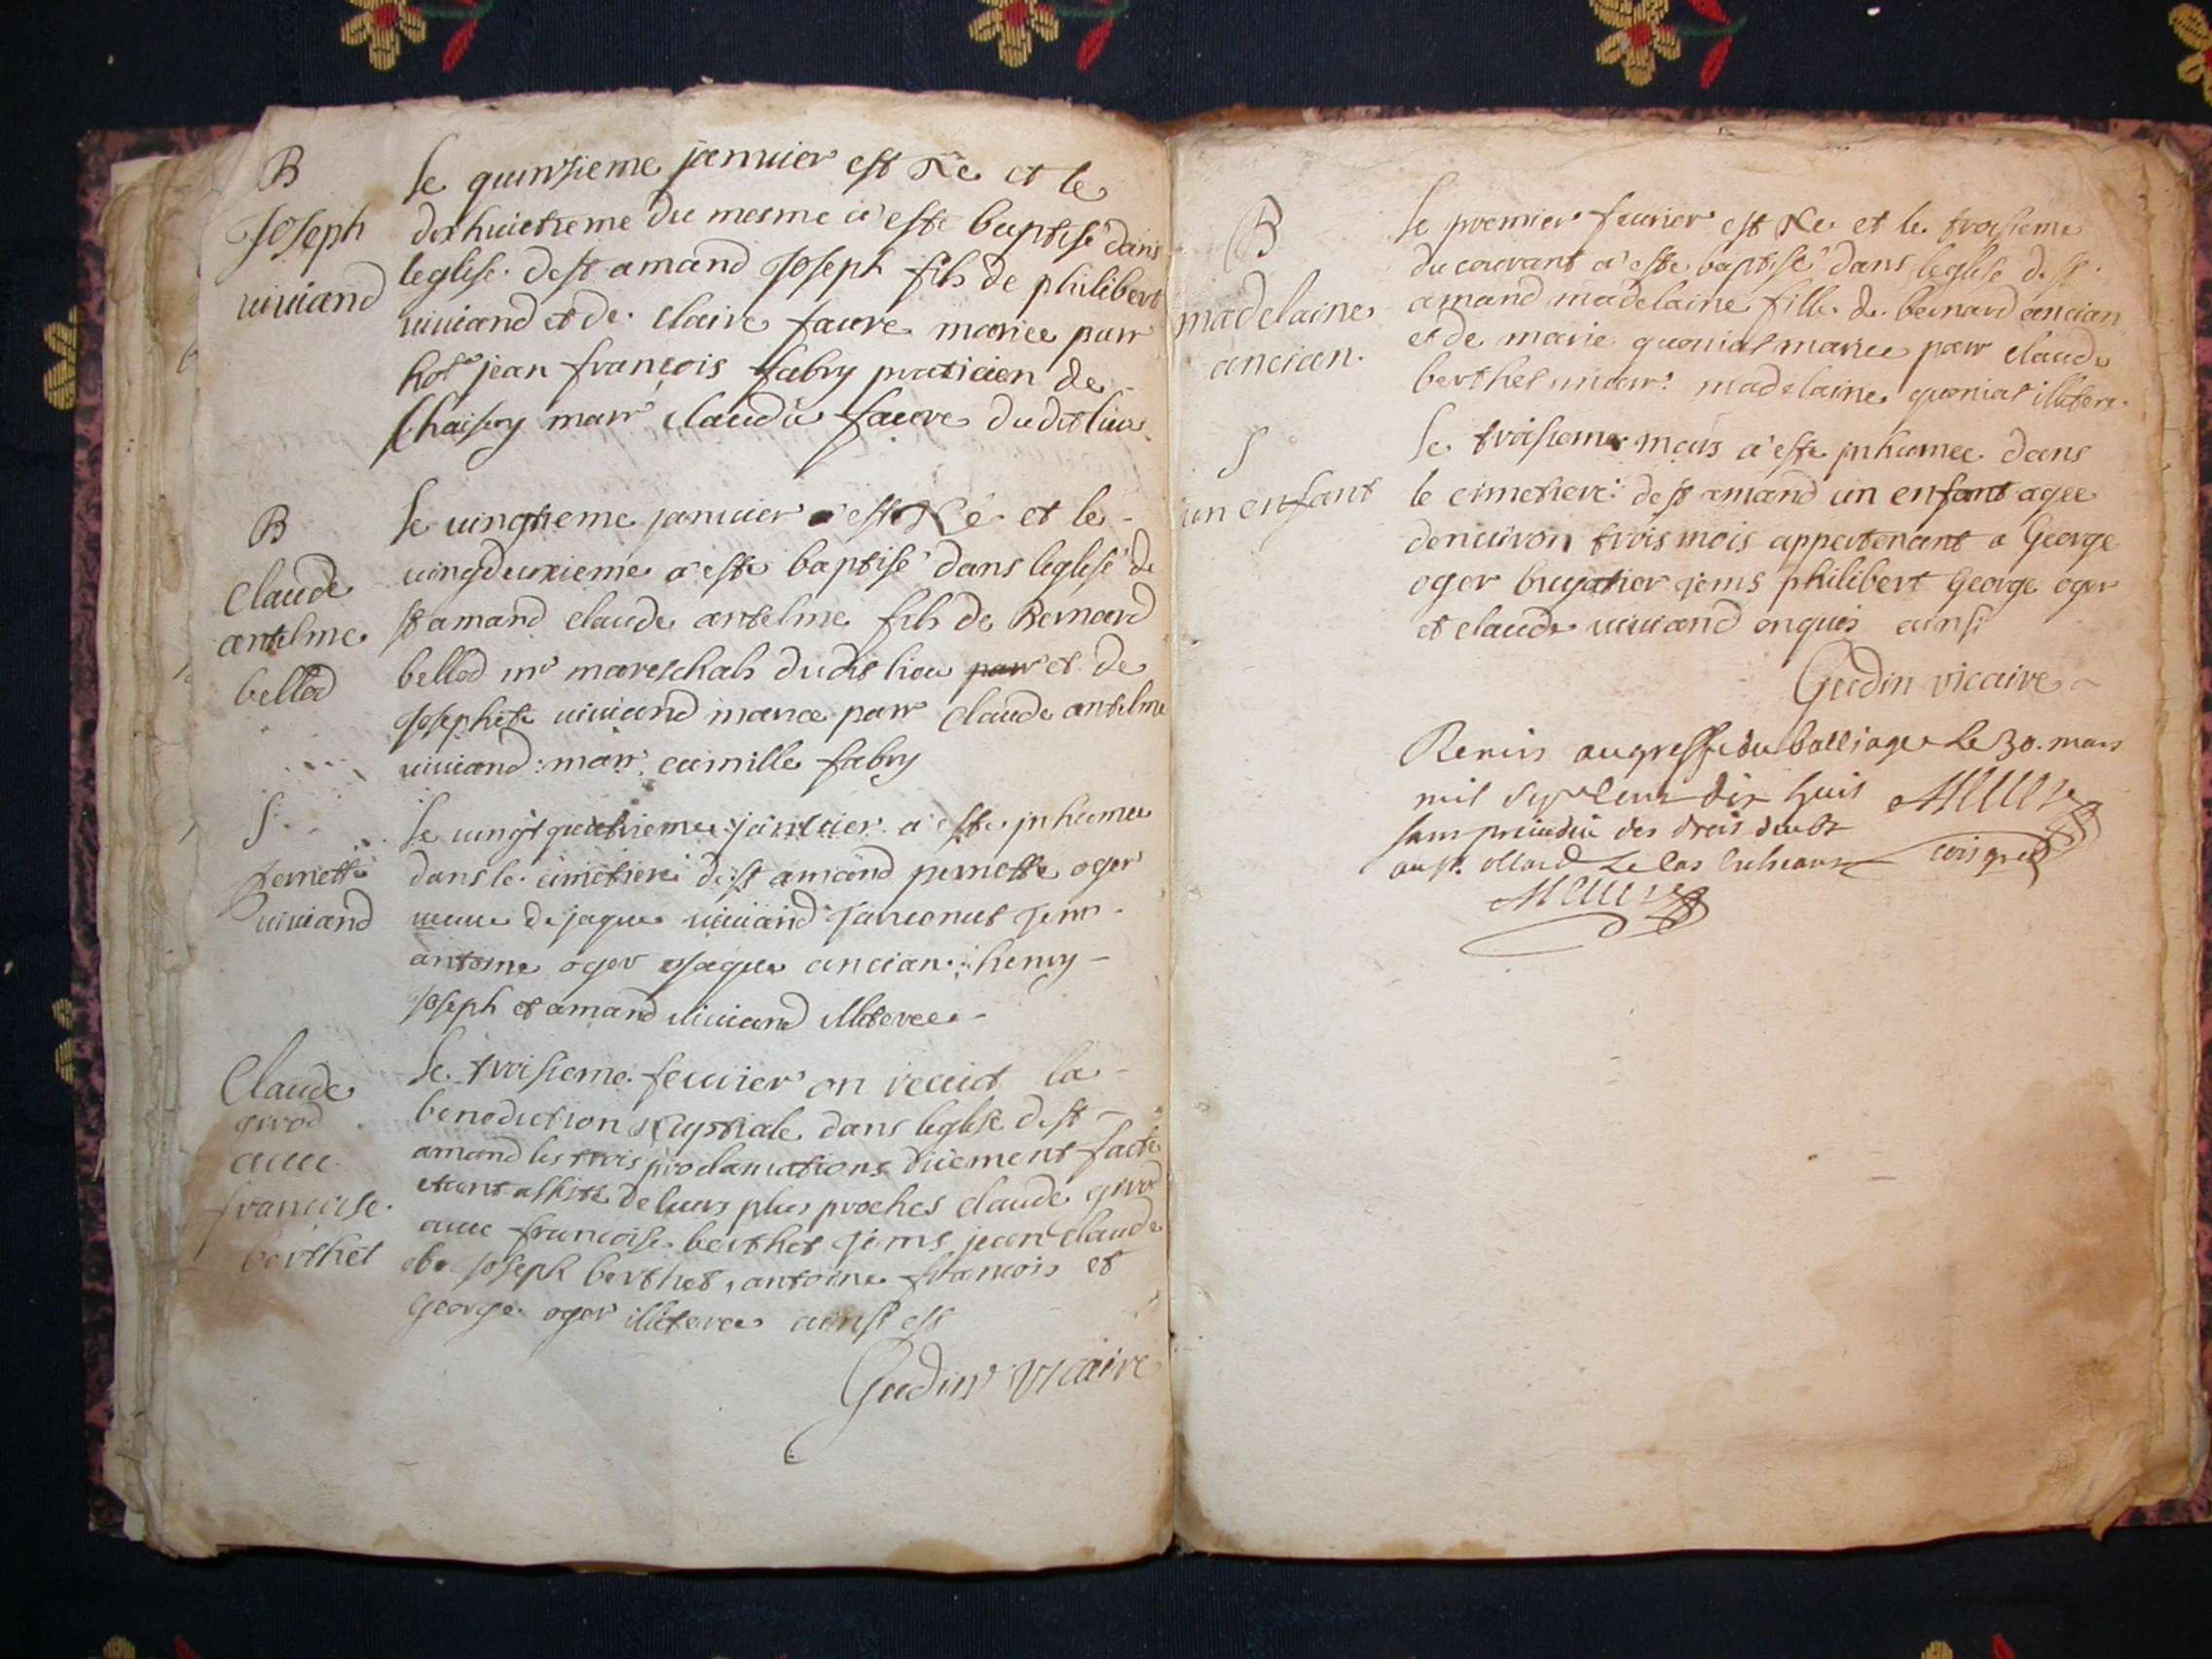 B
Joseph
uiuiand
le quinsieme januier est Ne et le
dixhuictieme du mesme a esté baptisé dans
leglise de st amand Joseph fils de philibert
uiuiand et de claire faure mariee parr
hole jean francois fabry praticien de
Chaisery marr claudã faure dudit lieu
B
Claude
antelme
bellod
le uingtieme januier est Né et le
uingdeuxieme a esté baptisé dans leglise de
st amand claude antelme fils de Bernard
bellod mr mareschals dudit lieu parr et de
Josephte uiuiand mariee parr Claude antelme
uiuiand marr camille fabry
S
pernette
uiuiand
le uingt quatrieme januier a esté inhumee
dans le cimetiere de st amand pernette oger
ueuue de jaque uiuiand
antoine oger jaque ancian henry
Joseph et amand uiuiand illiteree
Claude
girod
auec
francoise
berthet
le troisieme feurier on receut la
benediction Nuptiale dans leglise de st
amand les trois proclamations düement facte
etant assisté de leurs plus proches claude girod
auec francoise berthet tems jean claude
et Joseph berthet, antoine francois et
George oger illiteree ainsi est
Gudin vicaire
B
madelaine
ancian.
le premier feurier est Ne et le troisieme
du courant a esté baptisé dans leglise de st
amand madelaine fille de bernard ancian
et de marie quoniat mariee parr claude
berthet, marr. madelaine quoniat illitere.
S
un enfant
le troisieme mars a esté inhumee dans
le cimetiere de st amand un enfant agee
denuiron trois mois appertenant a George
oger tems philibert George oger
et claude uiuiand enquis ainsi
Gudin vicaire
Remis au greffe du balliage le 30. mars
mil sept cent dix huit
sans preiudice des droits
au sr. le cas